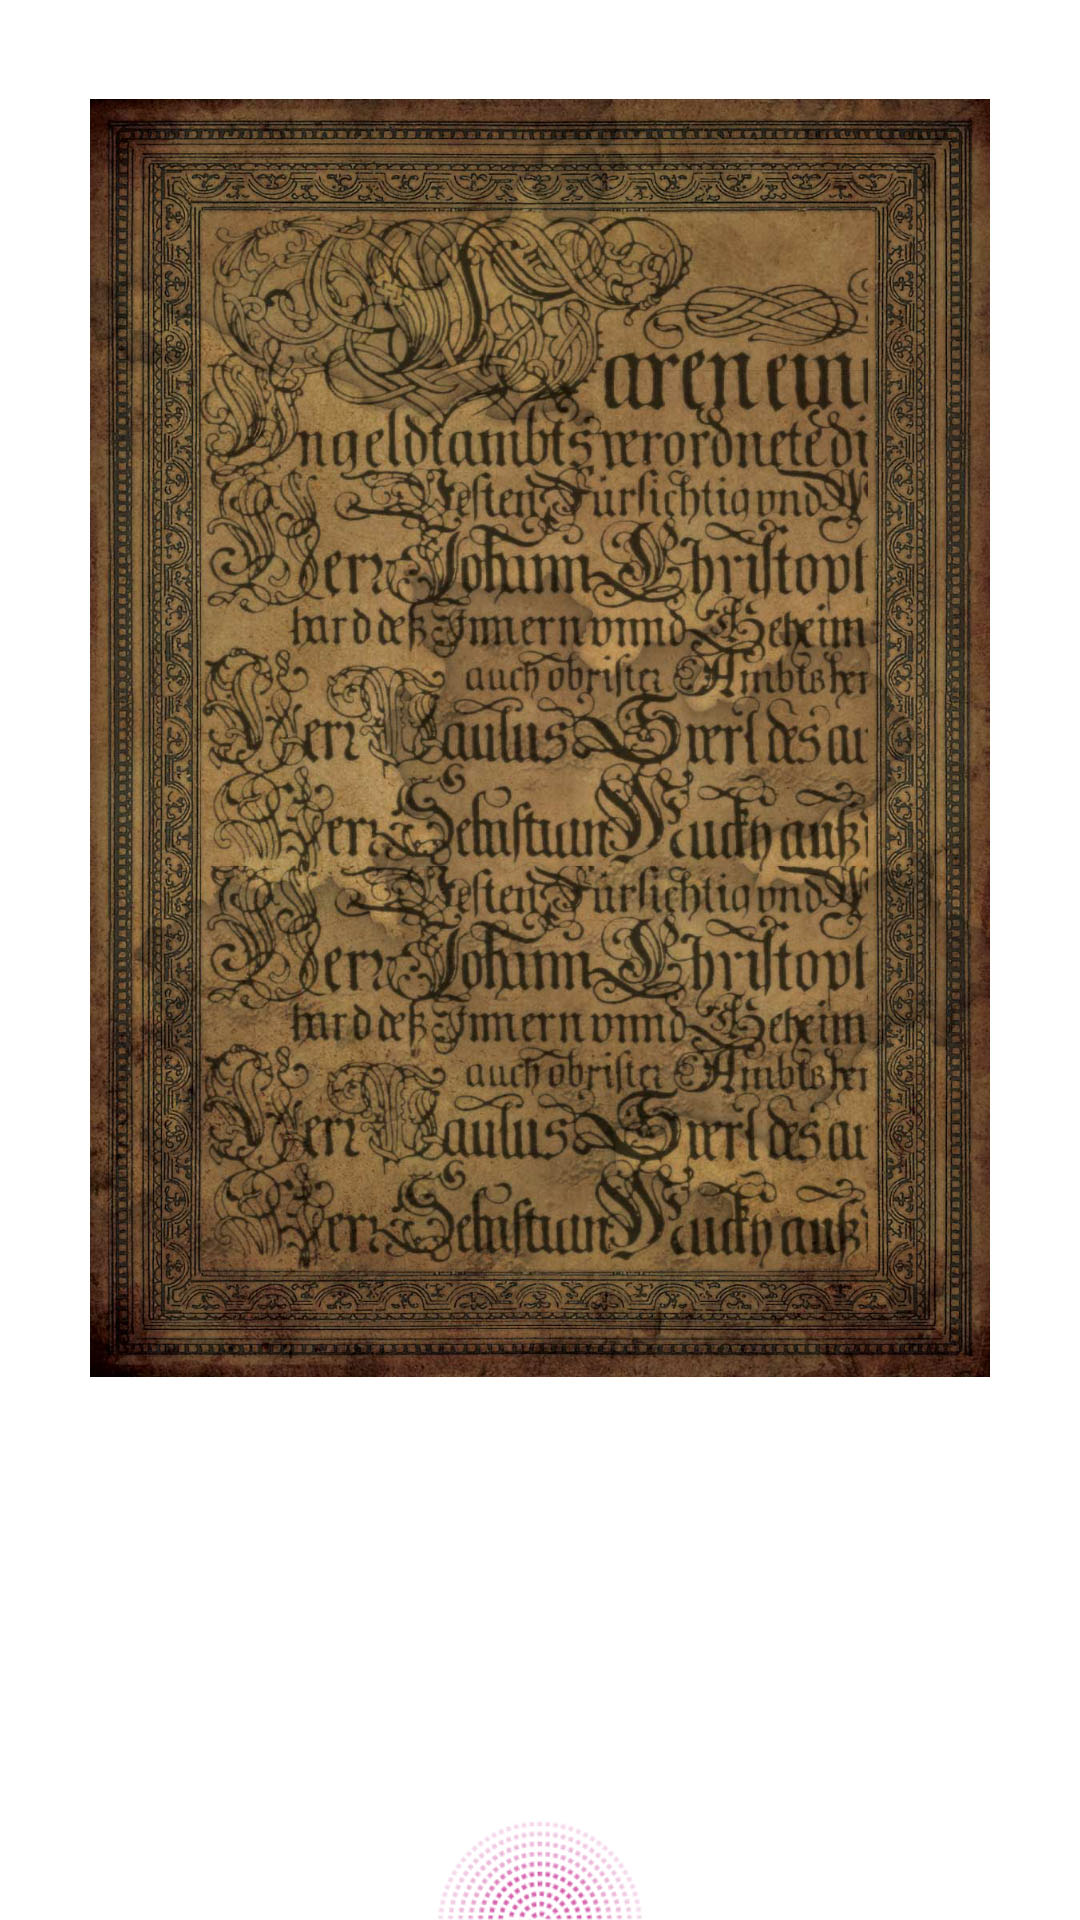 Waren eim
Ungeldtambts verordnete di
Vesten Fürsichtig vnd W
Herr Johann Christoph
hard deß Innern vnnd Geheim
auch obrister Ambtsherr
Herr Paulus des au
Herr Sebastian auß
Vesten Fürsichtig vnd W
Herr Johann Christoph
hard deß Innern vnnd Geheim
auch obrister Ambtsherr
Herr Paulus des au
Herr Sebastian auß